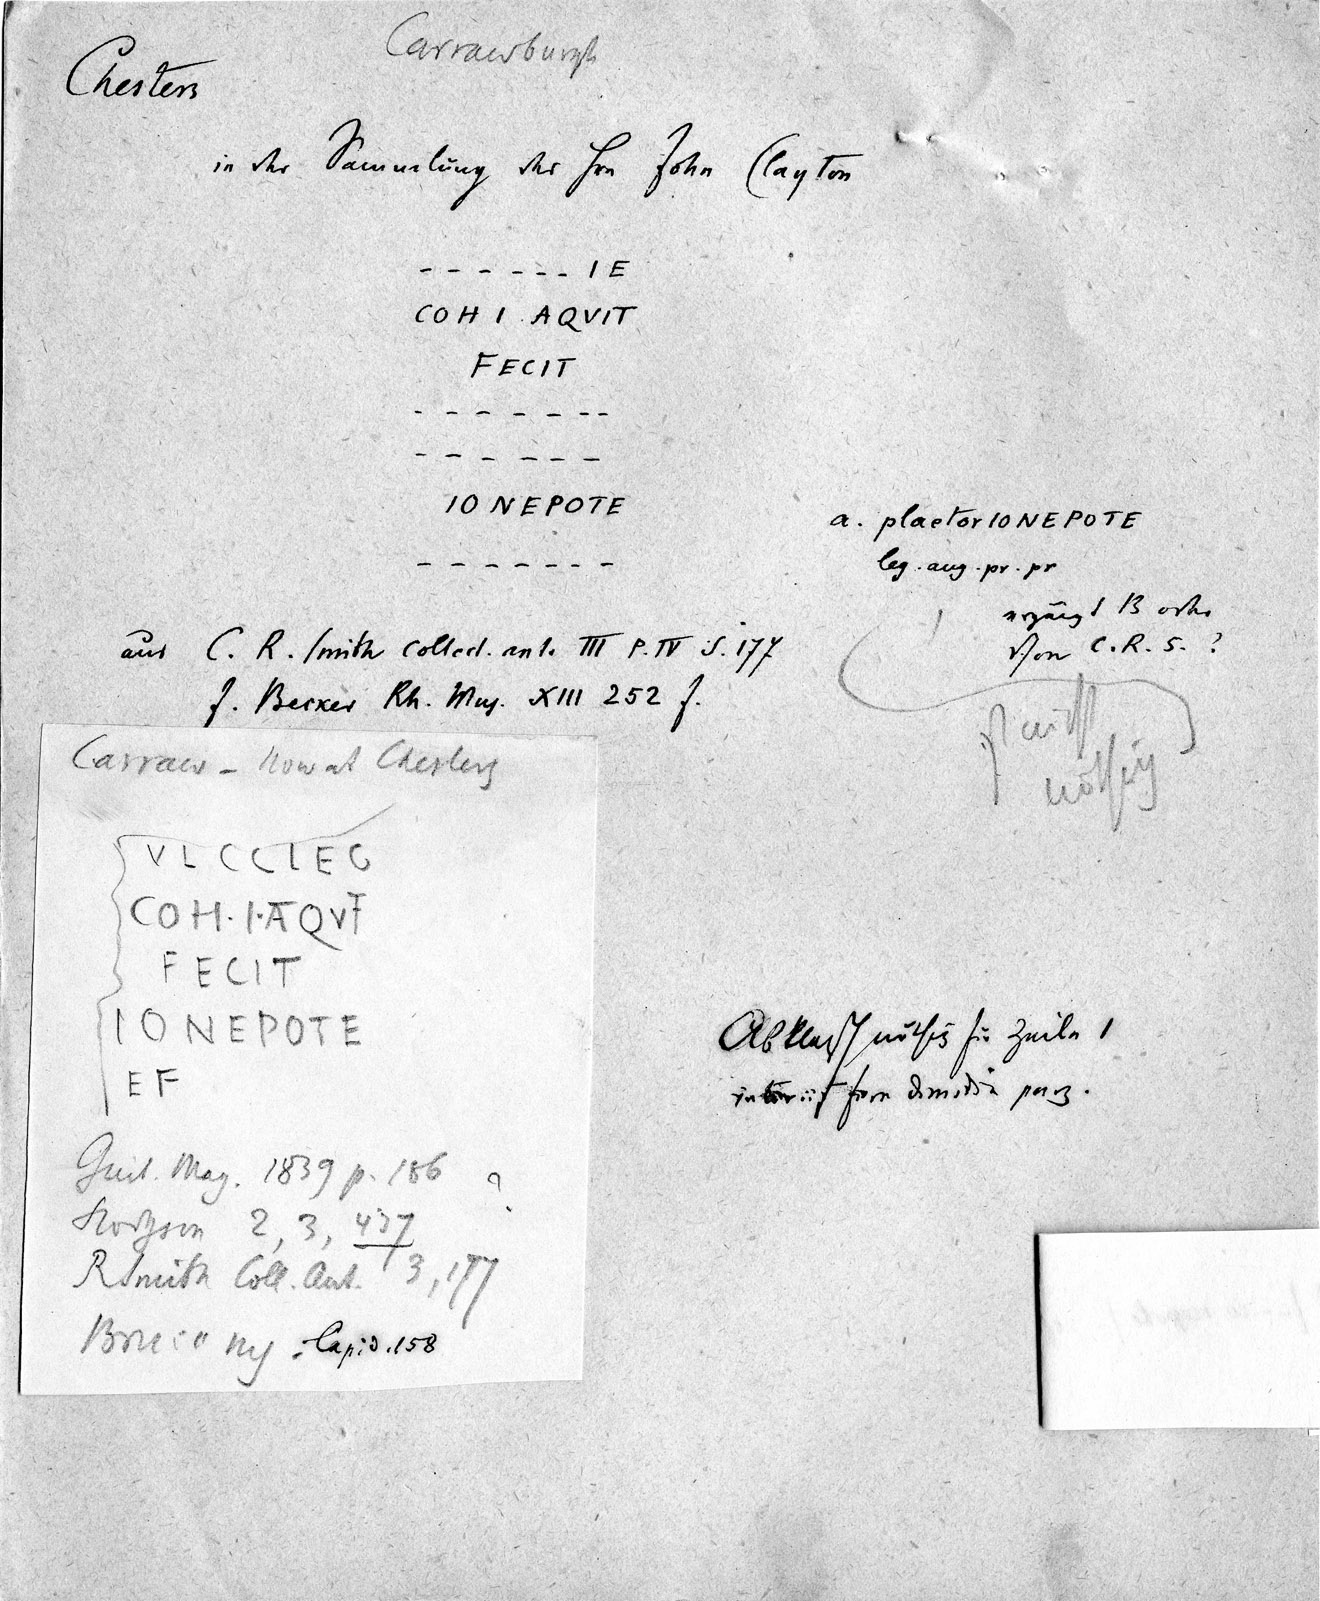 Carrawburgh
Chesters
in der Sammlung des Hrn John Clayton
- - - - - - IE
COH I AQVIT
FECIT
- - - - - - -
- - - - - -
IO NEPOTE
- - - - - - -
a. plaetorIO NEPOTE
leg. aug. pr. pr
ergänzt B oder
von C. R. S. ?
ist nicht
nöthig
aus C. R. Smith collect. ant. III P. IV S. 177
f. Becker Rh. Mus. XIII 252 f.
Carraw - now at Chesters
VLCCLEG
COH·I·AQVT
FECIT
IONEPOTE
EF
Gent. Mag. 1839 p. 186 ?
Hodgson 2, 3, 437
RSmith Coll. Ant. 3, 177
Bruce Lapid. 158
Abklatsch nöthig für Zeile 1